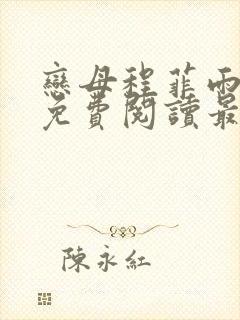 戀母程菲雨
免費閱讀最
陳永紅